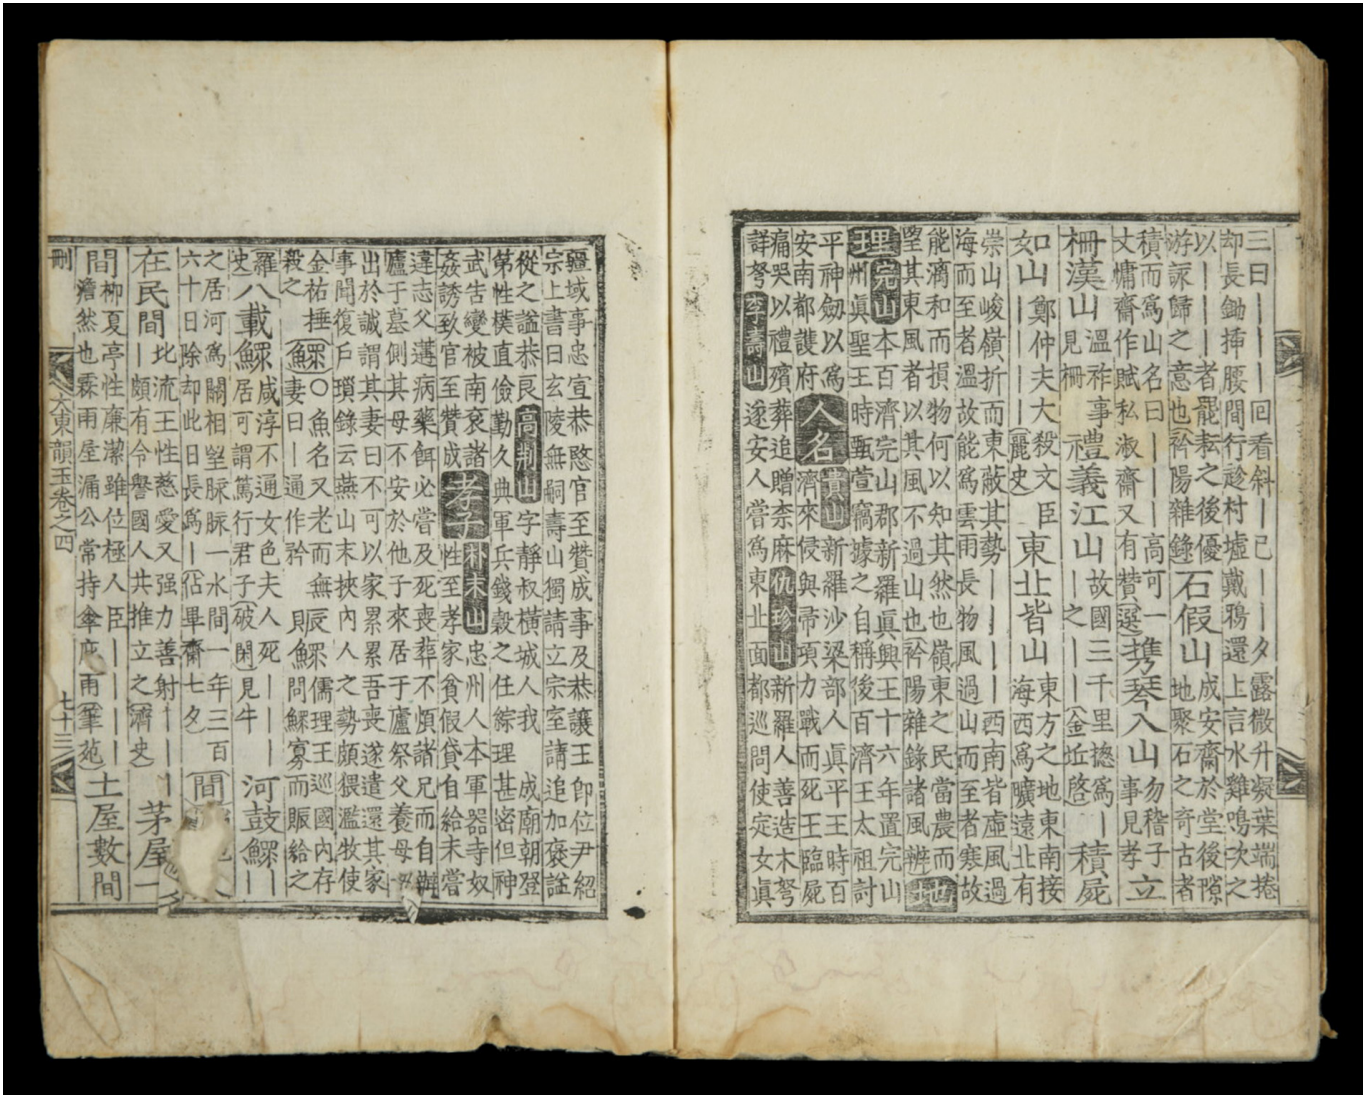 三曰｜｜｜｜回看斜｜已｜｜夕露微升凝葉端捲
却長鋤揷腰間行趁村墟戴鴉還上言水雞鳴次之
以｜｜｜者罷耘之後優
游詠歸之意也(衿陽雜錄)
石假山
成安齋於堂後隙
地聚石之奇古者
積而爲山名曰｜｜｜高可一
丈慵齋作賦私淑齋又有贊(選)
携琴入山
勿稽子
事見孝
立
柵漢山
溫祚事
見柵
禮義江山
故國三千里摠爲｜
之｜｜
積屍
如山
鄭仲夫大殺文臣
｜｜｜(麗史)
東北皆山
東方之地東南接
海西爲曠遠北有
崇山峻嶺折而東蔽其勢｜｜｜｜西南皆虛風過
海而至者溫故能爲雲雨長物風過山而至者寒故
能漓和而損物何以知其然也嶺東之民當農而
望其東風者以其風不過山也(衿陽雜錄諸風辨)
地
理
完山
本百濟完山郡新羅眞興王十六年置完山
州眞聖王時甄萱竊據之自稱後百濟王太祖討
平神劒以爲
安南都護府
人名
貴山
新羅沙梁部人眞平王時百
濟來侵與帚項力戰而死王臨屍
痛哭以禮殯葬追贈柰麻
仇珍山
新羅人善造木弩
詳弩
李壽山
遂安人嘗爲東北面都巡問使定女眞
疆域事忠宣恭愍官至贊成事及恭讓王卽位尹紹
宗上書曰玄陵無嗣壽山獨請立宗室請追加褒謚
從之謚恭良
高荆山
字靜叔橫城人我　成廟朝登
第性樸直儉勤久典軍兵錢穀之任綜理甚密但神
武告變被南袞諸
姦誘致官至贊成
孝子
朴末山
忠州人本軍器寺奴
性至孝家貧假貸自給未嘗
違志父遘病藥餌必嘗及死喪葬不煩諸兄而自辦
廬于墓側其母不安於他子來居于廬祭父養母一
出於誠謂其妻曰不可以家累累吾喪遂遣還其家
事聞復戶瑣錄云燕山末挾內人之勢頗猥濫牧使
金祐捶
殺之
鰥
○魚名又老而無
妻曰｜通作矜
辰鰥
儒理王巡國內存
問鰥寡而賑給之
羅
史
八載鰥
咸淳不通女色夫人死｜｜
居可謂篤行君子(破閑)見牛
河鼓鰥
｜｜
之居河爲關相望脉脉一水間一年三百
六十日除却此日長爲｜(佔畢齋七夕)
間
在民間
比流王性慈愛又强力善射｜｜
｜頗有令譽國人共推立之(濟史)
茅屋一
間
柳夏亭性廉潔雖位極人臣｜｜｜｜
澹然也霖雨屋漏公常持傘庇雨(筆苑)
土屋數間
刪
大東韻玉卷之四
七十三